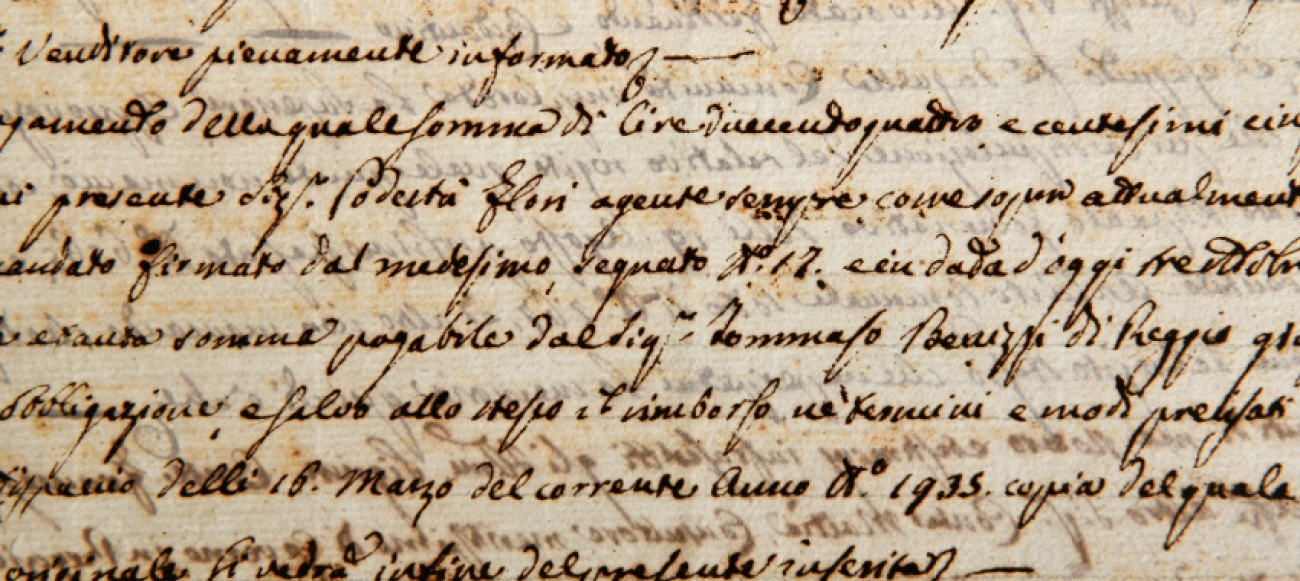 Venditore pienamente informato
agamento della quale somma di Lire duecentoquattro e centesimi cin
presente Sigr. Podestà Flori agente sempre come sopra attualment
andato firmato dal medesimo segnato N.° 17. e in dada d'oggi tre Ottobr
somma pagabile dal Sigr. Tommaso di Reggio
obbligazione, e salvo allo stesso il rimborso ne' termini e modi precisati
delli 16. Marzo del corrente Anno N.° 1935. copia del quale
originale si vedrà infine del presente inserita